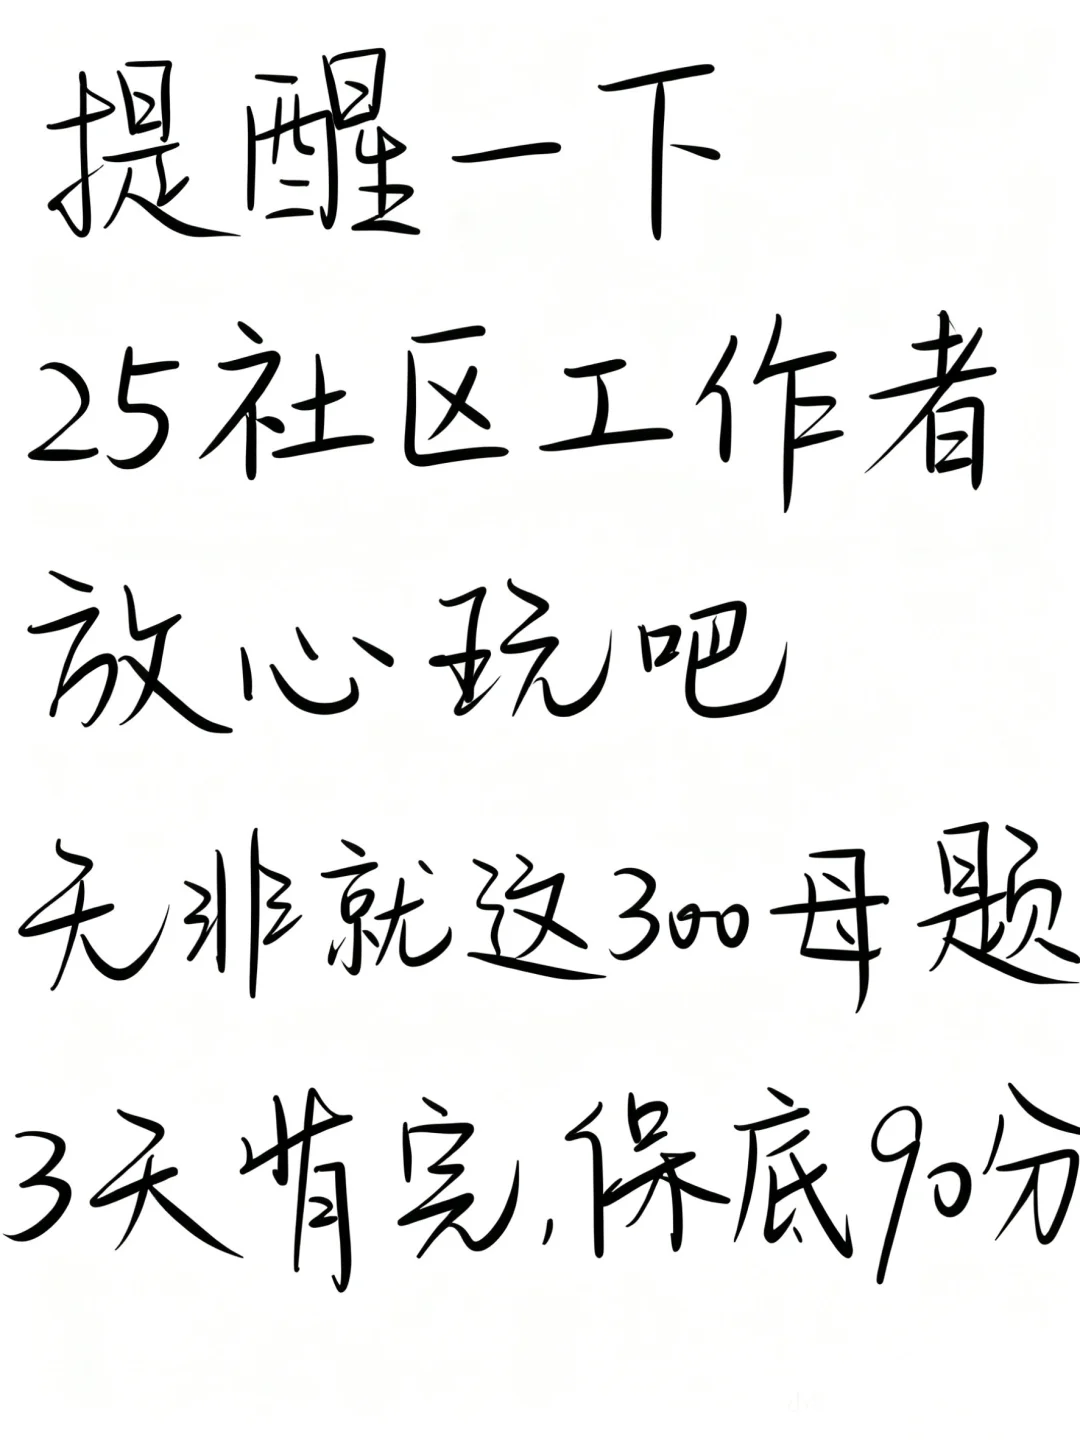 提醒一下
25社区工作者
放心玩吧
无非就这300母题
3天背完,保底90分